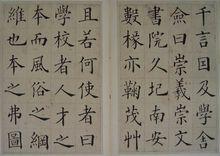 千言因及學舍
僉曰崇義崇文
書院久圮南安
數椽亦鞠茂艸
且若何使者曰
學校者人才之
本而風俗之綱
維也本之弗圖